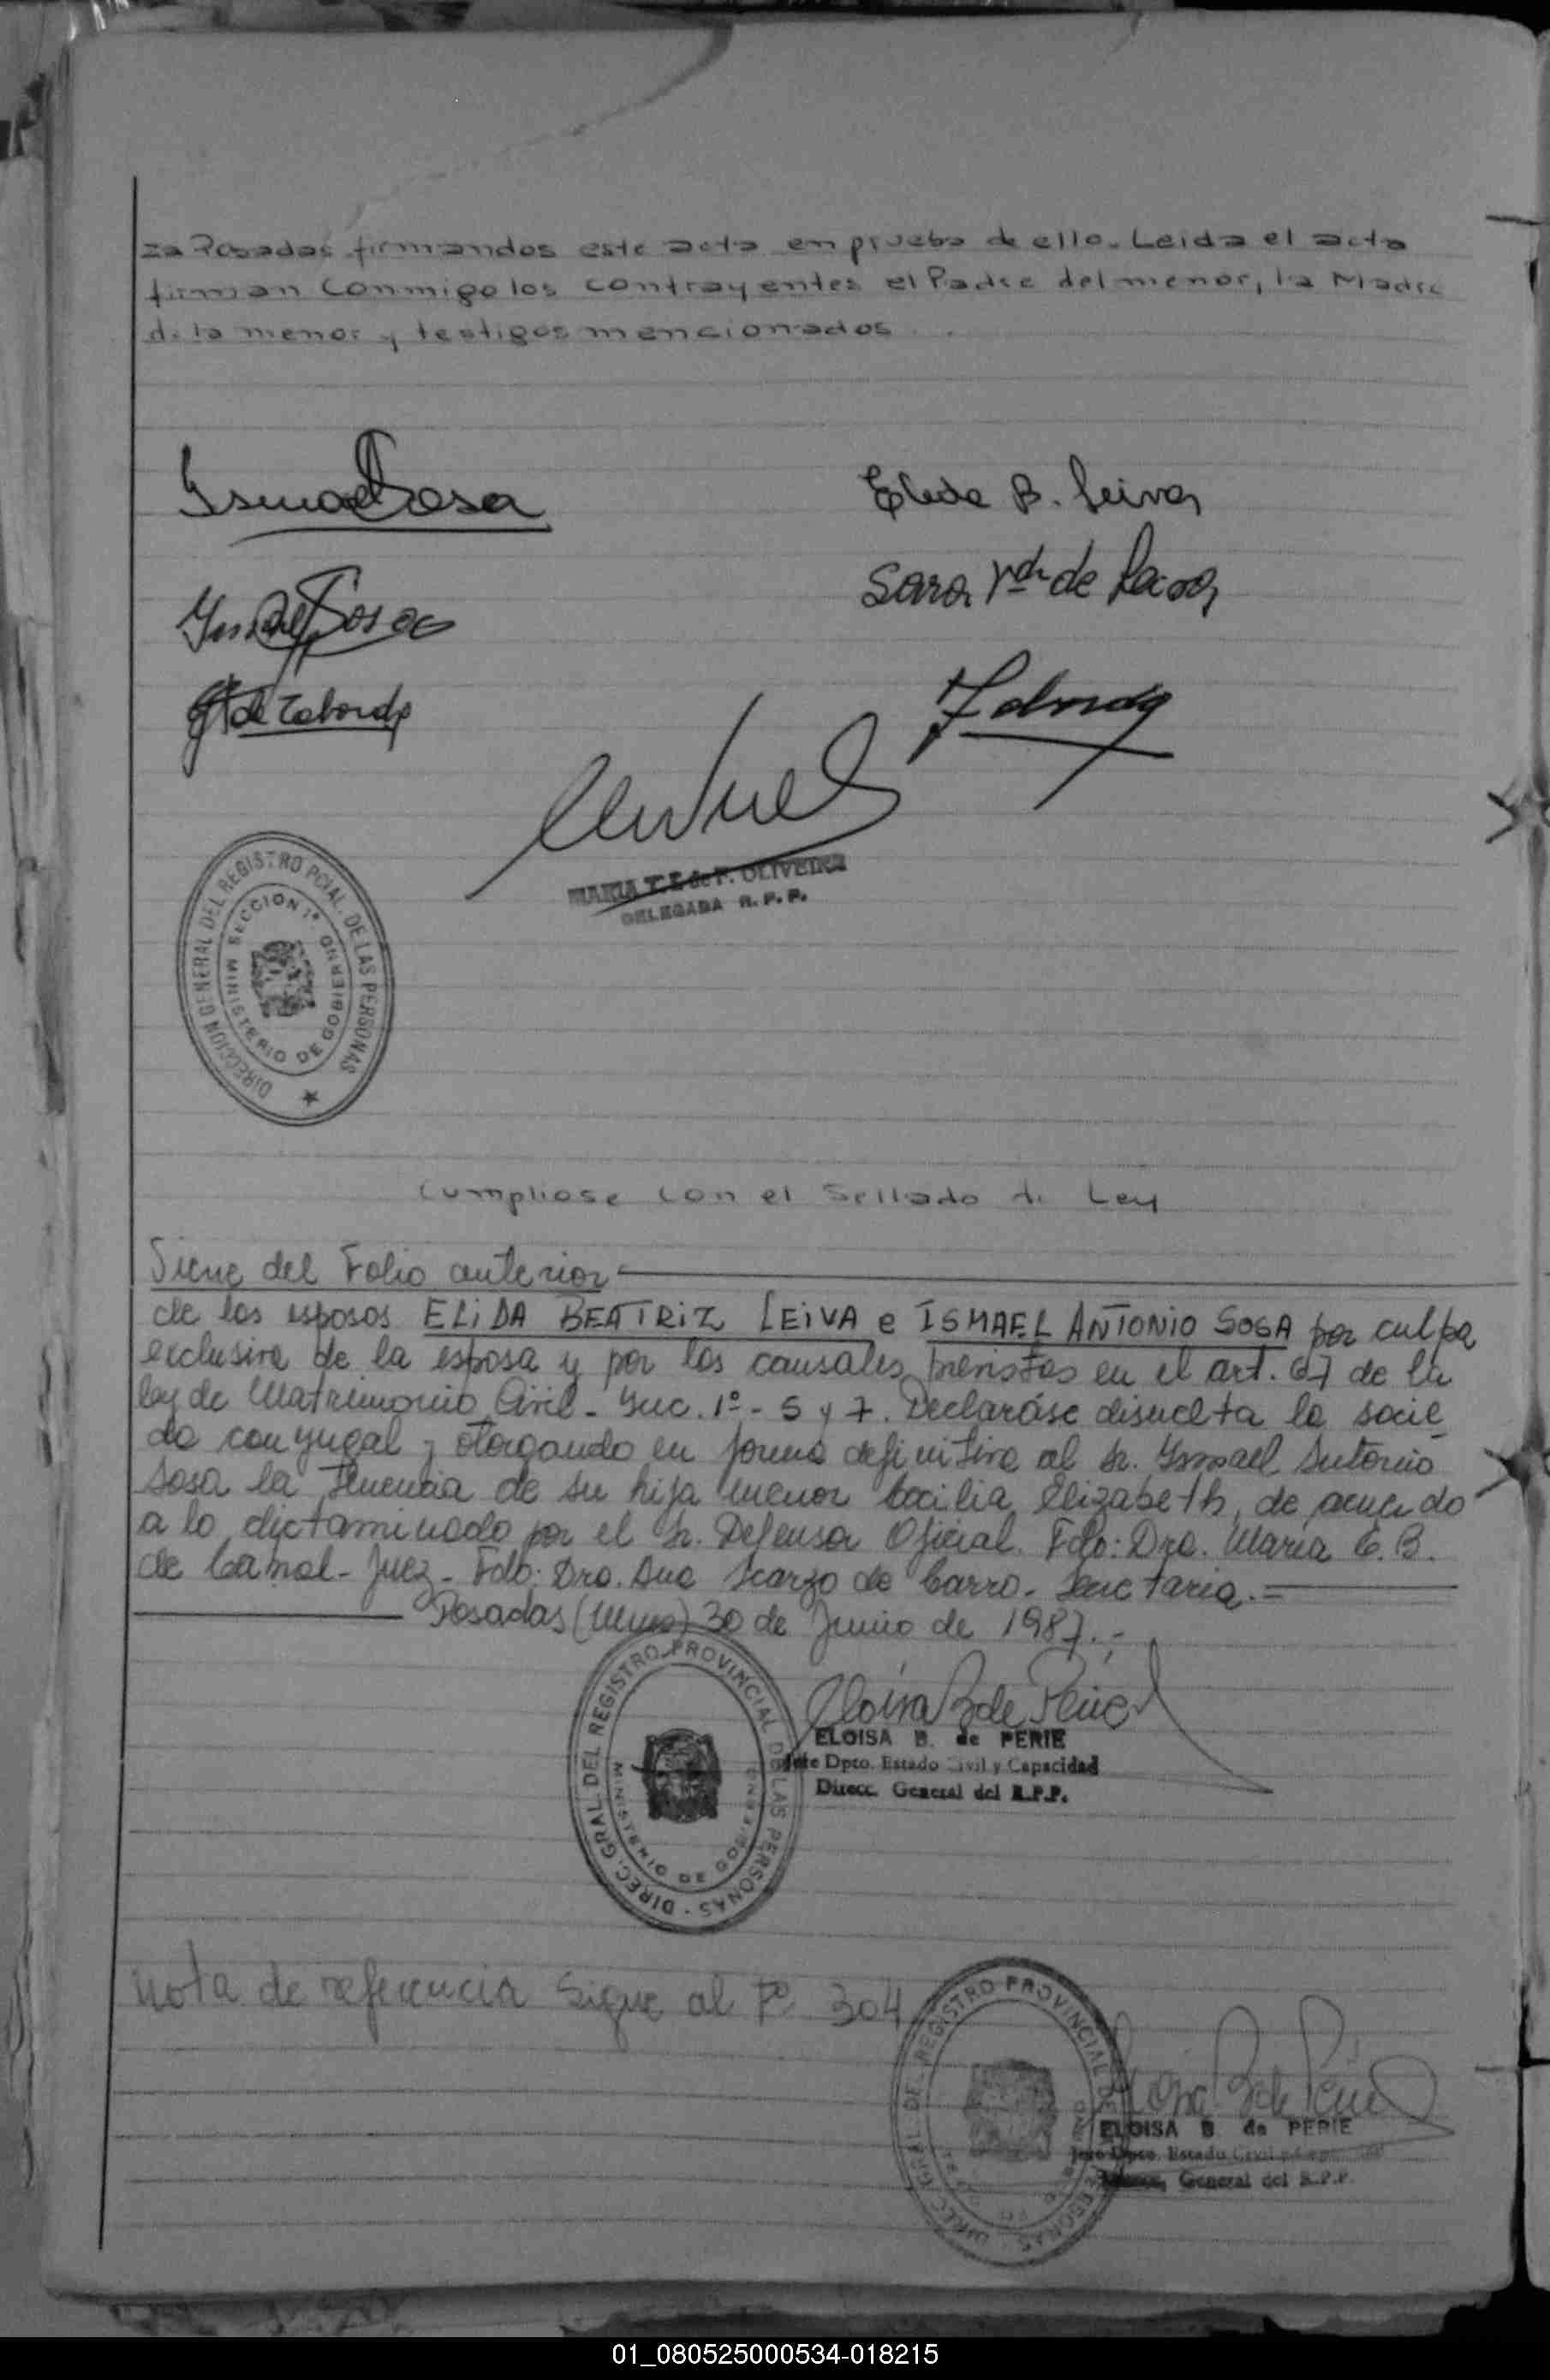 za Posadas firmandos este acta en prueba de ello. Leida el acta
firman conmigo los contrayentes el Padre del menor, la Madre
de la menor y testigos mencionados.
Ismael Sosa
Elida B. Leiva
Sara Vda de
Ismael Sosa
de Taborda
Taborda
MARIA T. I. de F. OLIVEIRA
DELEGADA R. P. P.
DIRECCION GENERAL DEL REGISTRO PCIAL. DE LAS PERSONAS
SECCION 1º
MINISTERIO DE GOBIERNO
Cumpliose con el Sellado de Ley
Viene del Folio anterior
de los esposos ELIDA BEATRIZ LEIVA e ISMAEL ANTONIO SOSA por culpa
exclusiva de la esposa y por las causales previstas en el art. 67 de la
ley de Matrimonio Civil - Inc. 1º - 5 y 7. Declaráse disuelta la socie
da conyugal y otorgando en forma definitiva al Sr. Ismael Antonio
Sosa la Tenencia de su hija menor Cecilia Elizabeth, de acuerdo
a lo dictaminado por el Sr. Defensor Oficial. Fdo: Dra. María E. B.
de - Juez - Fdo: Dra. Ana Scarzo de Carro - Secretaria.=
Posadas (Mnes) 30 de Junio de 1987.-
DIREC. GRAL. DEL REGISTRO PROVINCIAL DE LAS PERSONAS
MINISTERIO DE GOBIERNO
Eloisa B de Perié
ELOISA B. de PERIE
Jefe Dpto. Estado Civil y Capacidad
Direcc. General del R.P.P.
Nota de referencia Sigue al Fº 304
DIREC. GRAL. DEL REGISTRO PROVINCIAL DE LAS PERSONAS
Eloisa B de Perié
ELOISA B de PERIE
Jefe Dpto. Estado Civil y Capacidad
Direcc. General del R.P.P.
01_080525000534-018215